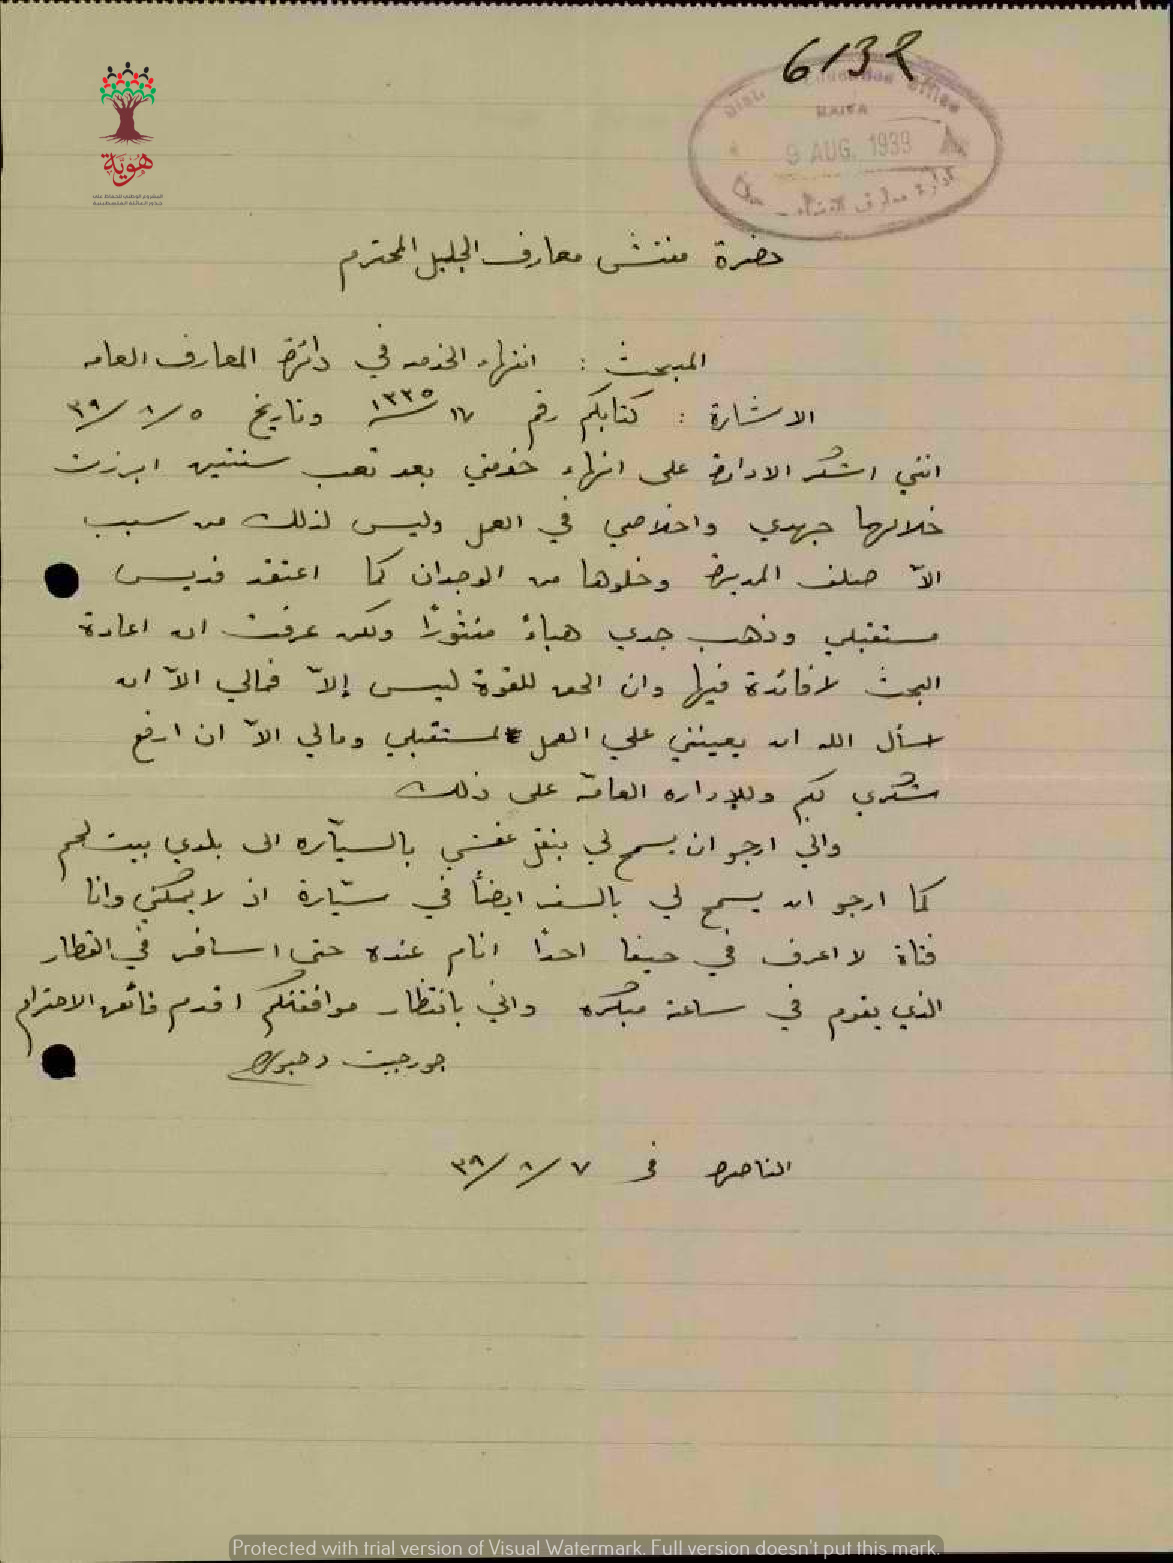 6132
Office
HAIFA
9 AUG. 1939
هوية
حضرة مفتش معارف الجليل المحترم
المبحث : انتهاء الخدمه في دائرة المعارف العامه
الاشارة : كتابكم رقم ١٧/١٣٣٥ وتاريخ ٥/٨/٣٩
انني اشكر الادارة على انهاء خدمتي بعد تعب سنتين ابرزت
خلالهما جهدي واخلاصي في العمل وليس لذلك من سبب
الاّ صلف المديرة وخلوها من الوجدان كما اعتقد فديس
مستقبلي وذهب جدي هباءً منثورًا ولكن عرفت ان اعادة
البحث لا فائدة فيها وان الحق للقوة ليس إلاّ فمالي الاّ ان
اسأل الله ان يعينني على العمل لمستقبلي ومالي الاّ ان ارفع
شكري لكم وللإداره العامّة على ذلك
واني ارجو ان يسمح لي بنقل عفشي بالسيّاره الى بلدي بيت لحم
كما ارجو ان يسمح لي بالسفر ايضاً في سيّارة اذ لا يمكنني وانا
فتاة لا اعرف في حيفا احدًا انام عنده حتى اسافر في القطار
الذي يقوم في ساعة مبكره واني بانتظار موافقتكم اقدم فائق الاحترام
جورجيت دحبورة
الناصرة في ٧/٨/٣٩
Protected with trial version of Visual Watermark. Full version doesn't put this mark.